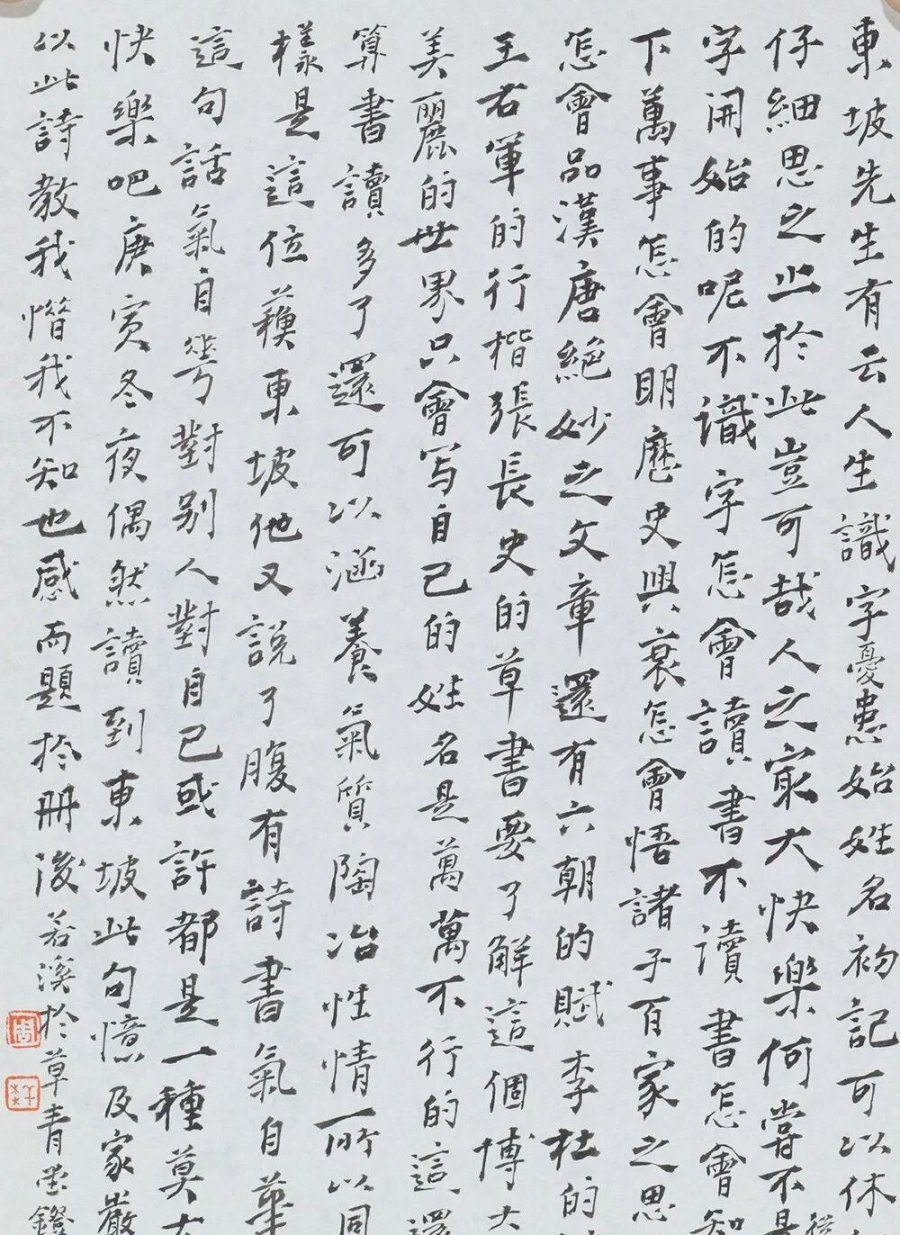 東坡先生有云人生識字憂患始姓名初記可以休
仔細思之止於此豈可哉人之家大快樂何嘗不是從
字開始的呢不識字怎會讀書不讀書怎會知
下萬事怎會明歷史興衰怎會悟諸子百家之思
怎會品漢唐絕妙之文章還有六朝的賦李杜的
王右軍的行楷張長史的草書要了解這個博大
美麗的世界只會写自己的姓名是萬萬不行的這還
算書讀多了還可以涵養氣質陶冶性情所以同
樣是這位蘇東坡他又說了腹有詩書氣自華
這句話氣自華對别人對自己或許都是一種莫大
快樂吧庚寅冬夜偶然讀到東坡此句憶及家嚴
以此詩教我惜我不知也感而題於冊後若溪於草青堂鐙